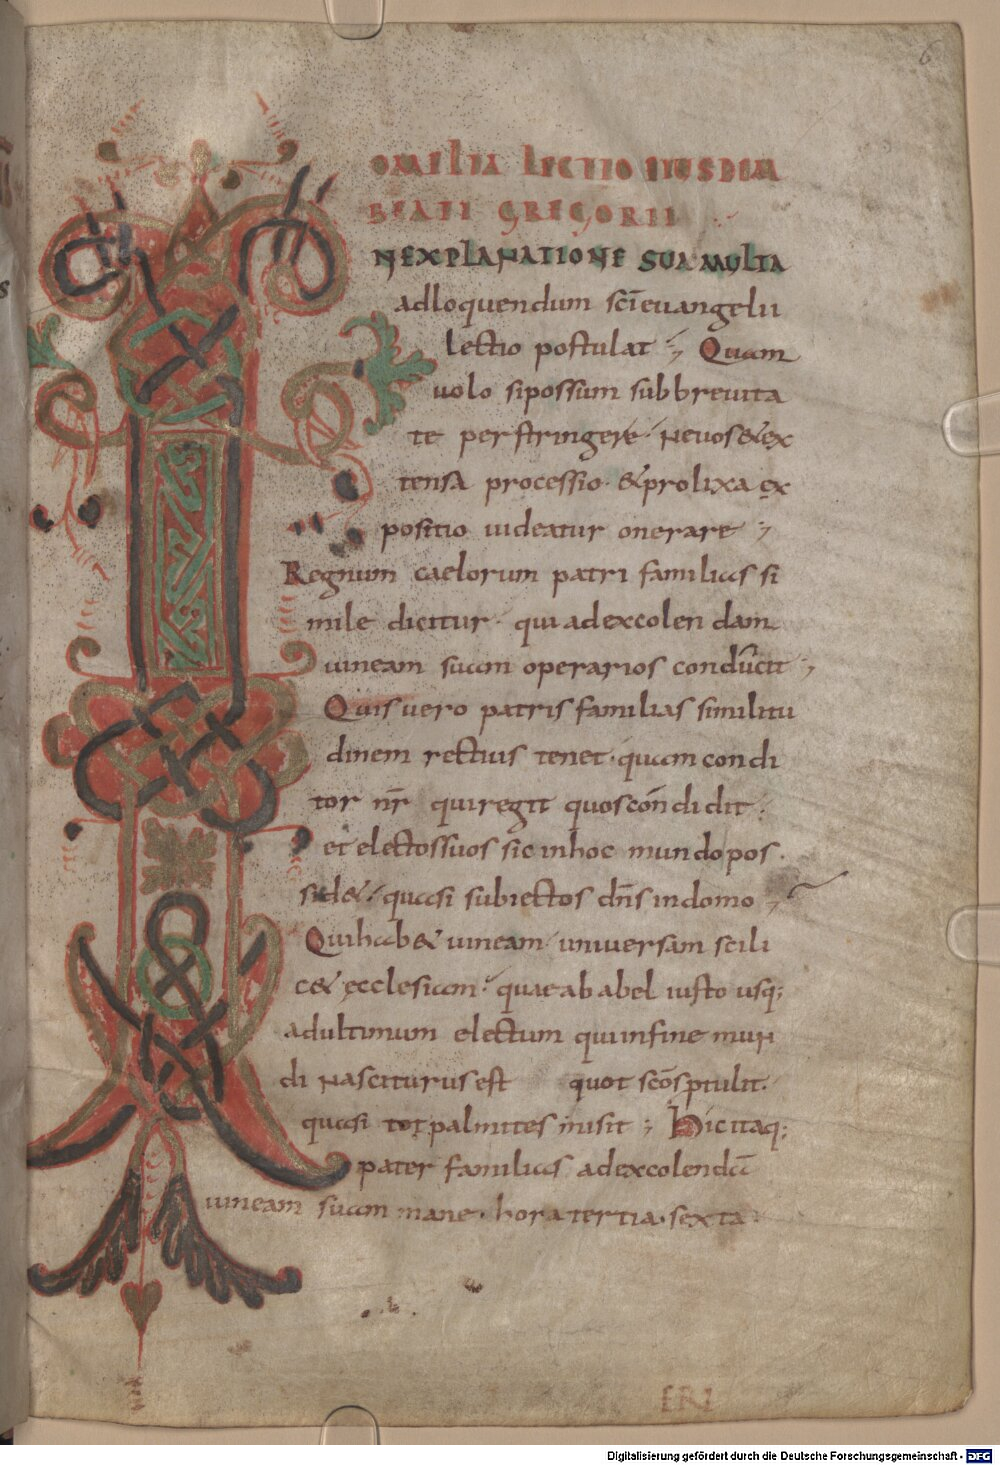 6
OMILIA LECTIO EIUSDEM
BEATI GREGORII
IN EXPLANATIONE SUA MULTA
ad loquendum sc̄i euangelii
lectio postulat ; Quam
uolo si possum sub breuita
te perstringere · Ne uos & ex
tensa processio · & prolixa ex
positio uideatur onerare ;
Regnum caelorum patri familias si
mile dicitur · qui ad excolendam
uineam suam operarios conducit ;
Quis uero patris familias similitu
dinem rectius tenet · quam condi
tor nr̄ qui regit quos condidit ·
et electos suos sic in hoc mundo pos
sid& · quasi subiectos dn̄s in domo ;
Qui hab& uineam uniuersam scili
c& ecclesiam · quae ab abel iusto usq;
ad ultimum electum qui in fine mun
di nasciturus est quot scōs ptulit ·
quasi tot palmites misit ; Hic itaq;
pater familias ad excolendā
uineam suam mane · hora tertia · sexta ·
Digitalisierung gefördert durch die Deutsche Forschungsgemeinschaft - DFG